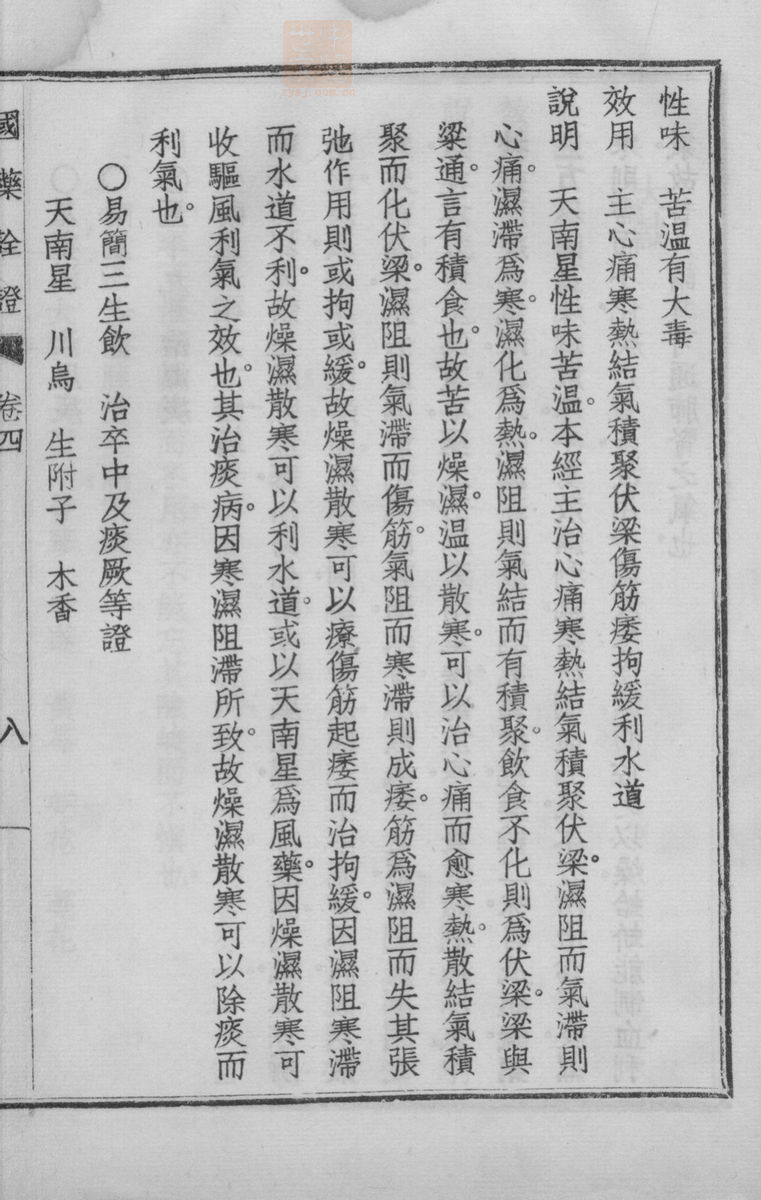 性味　苦溫有大毒
效用　主心痛寒熱結氣積聚伏梁傷筋痿拘緩利水道
說明　天南星性味苦溫。本經主治心痛寒熱結氣積聚伏梁。濕阻而氣滯則
心痛。濕滯爲寒。濕化爲熱。濕阻則氣結而有積聚。飲食不化則爲伏梁。梁與
粱通。言有積食也。故苦以燥濕。溫以散寒。可以治心痛而愈寒熱。散結氣積
聚而化伏梁。濕阻則氣滯而傷筋。氣阻而寒滯則成痿。筋爲濕阻而失其張
弛作用則或拘或緩。故燥濕散寒可以療傷筋起痿而治拘緩。因濕阻寒滯
而水道不利。故燥濕散寒可以利水道。或以天南星爲風藥。因燥濕散寒可
收驅風利氣之效也。其治痰病。因寒濕阻滯所致。故燥濕散寒可以除痰而
利氣也。
〇易簡三生飲　治卒中及痰厥等證
天南星　川烏　生附子　木香
國藥詮證　卷四　八